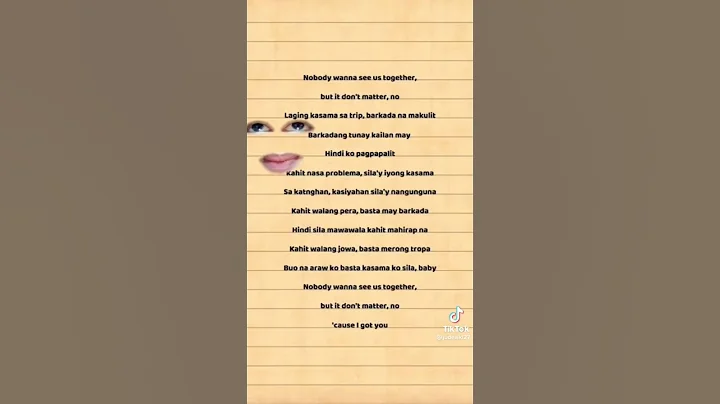 Nobody wanna see us together,
but it don't matter, no
Laging kasama sa trip, barkada na makulit
Barkadang tunay kailan may
Hindi ko pagpapalit
Kahit nasa problema, sila'y iyong kasama
Sa katnghan, kasiyahan sila'y nangunguna
Kahit walang pera, basta may barkada
Hindi sila mawawala kahit mahirap na
Kahit walang jowa, basta merong tropa
Buo na araw ko basta kasama ko sila, baby
Nobody wanna see us together,
but it don't matter, no
'cause I got you
TikTok